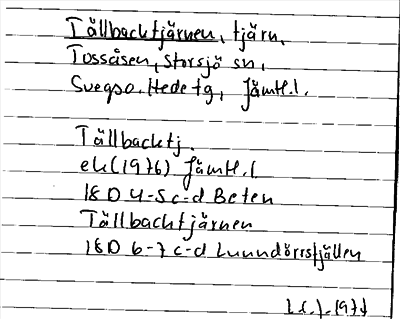 Tällbacktjärnen, tjärn,
Tossåsen, Storsjö sn,
Svegs o. Hede tg, Jämtl. l.
Tällbacktj.
ek (1976) Jämtl. l
18D 4-5 c-d Beten
Tällbacktjärnen
18D 6-7 c-d Lunndörrsfjällen